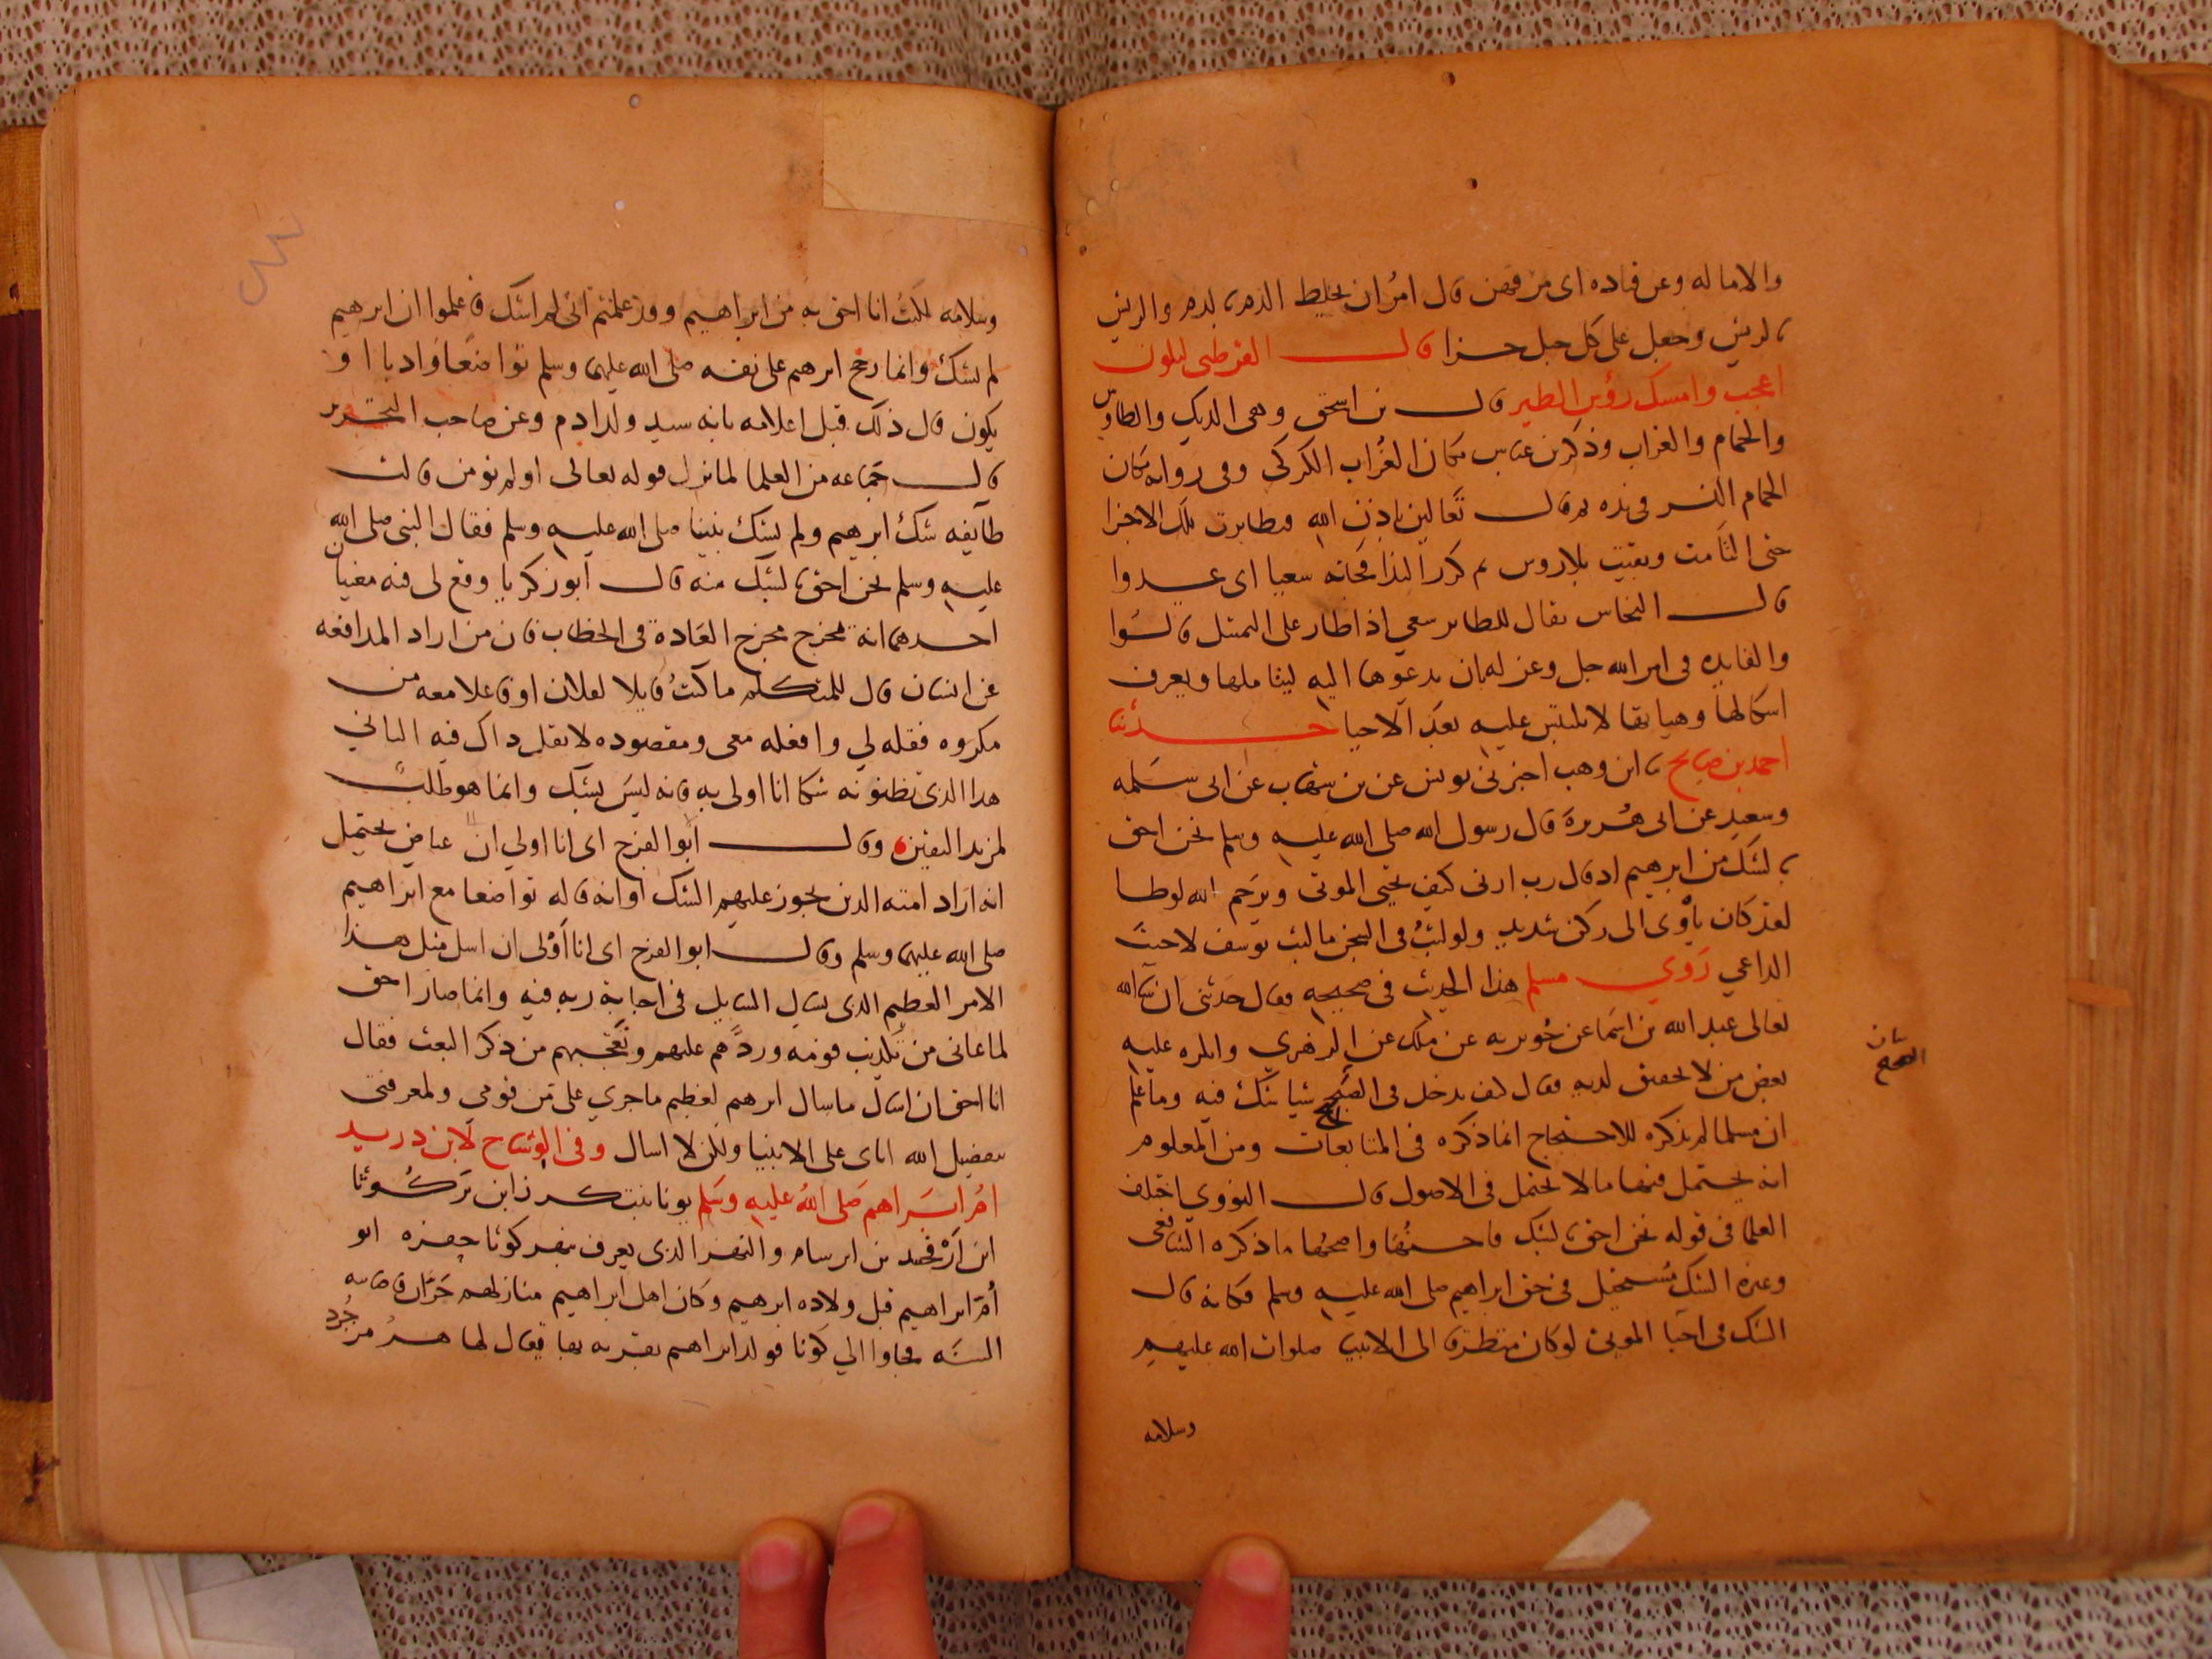 والاماله وعن قتاده اى مزقهن قال امر ان يخلط الدم بالدم والريش
بالريش وجعل على كل جبل جزا قال القرطبى ليكون
اعجب وامسك رؤس الطير قال بن اسحق وهى الديك والطاوس
والحمام والغراب وذكر بن عباس مكان الغراب الكركى وفى روايه مكان
الحمام النسر فى يده ثم قال تعالين باذن الله فتطايرت تلك الاجزا
حتى التامت وبقيت بلا روس ثم كرر الندا فجاته سعيا اى عدوا
قال النحاس يقال للطاير سعى اذا طار على التمثل قالوا
والفايده فى امر الله جل وعز له بان يدعوها اليه ليتاملها ويعرف
اشكالها وهيآتها لا تلتبس عليه بعد الاحيا حدثنا
احمد بن صالح نا ابن وهب اخبرنى يونس عن بن شهاب عن ابى سلمه
وسعيد عن ابى هريرة قال رسول الله صلى الله عليه وسلم نحن احق
بالشك من ابرهيم اذ قال رب ارنى كيف تحيى الموتى ويرحم الله لوطا
لقد كان يأوى الى ركن شديد ولو لبثت فى السجن ما لبث يوسف لاجبت
الداعي روي مسلم هذا الحديث فى صحيحه فقال حدثنى ان شا الله
تعالى عبد الله بن اسما عن جويريه عن ملك عن الزهري وانكره عليه
بعض من لا تحقيق لديه فقال كيف يدخل فى الصحيح شيا يشك فيه وما علم
ان مسلما لم يذكره للاحتجاج انما ذكره فى المتابعات ومن المعلوم
انه يحتمل فيها ما لا يحتمل فى الاصول قال النووي اختلف
العلما فى قوله نحن احق بالشك فاحسنها واصحها ما ذكره الشافعى
وغيره الشك مستحيل فى حق ابراهيم صلى الله عليه وسلم فكانه قال
الشك فى احيا الموتى لو كان متطرقا الى الانبيا صلوات الله عليهم
وسلامه
وسلامه لكنت انا احق به من ابراهيم وقد علمتم انى لم اشك فاعلموا ان ابرهيم
لم يشك وانما رجح ابرهم على نفسه صلى الله عليهما وسلم تواضعا وادبا او
يكون قال ذلك قبل اعلامه بانه سيد ولد ادم وعن صاحب التحرير
قال جماعه من العلما لما نزل قوله تعالى اولم تومن قالت
طايفه شك ابرهيم ولم يشك نبينا صلى الله عليه وسلم فقال النبى صلى الله
عليه وسلم نحن احق بالشك منه قال ابو زكريا وقع لى فيه معنيان
احدهما انه مخرج مخرج العادة فى الخطاب فان من اراد المدافعه
عن انسان قال للمتكلم ما كنت قايلا لفلان او فاعلا معه من
مكروه فقله لي وافعله معى ومقصوده لا تقل ذاك فيه الثاني
هذا الذى تظنونه شكا انا اولى به فانه ليس بشك وانما هو طلب
لمزيد اليقين وقال ابو الفرج اى انا اولي ان عياض يحتمل
انه اراد امته الذين يجوز عليهم الشك او انه قاله تواضعا مع ابراهيم
صلى الله عليهما وسلم وقال ابو الفرج اى انا أولى ان اسل مثل هذا
الامر العظيم الذى يسال السايل فى اجابة ربه فيه وانما صار احق
لما عانى من تكذيب قومه وردهم عليهم وتعجبهم من ذكر البعث فقال
انا احق ان اسال ما سال ابرهم لعظيم ما جري على من قومي ولمعرفتى
بتفضيل الله اياى على الانبيا ولكن لا اسال وفى الوشاح لابن دريد
ام ابراهم صلى الله عليه وسلم يونا بنت كرنا بن كوثا
ابن ارفخشد بن ابرسام والنهر الذى يعرف بنهر كوثا حفره ابو
أم ابراهيم قبل ولاده ابرهيم وكان اهل ابراهيم منازلهم حران فاصابه
السنه فجاوا الي كوثا فولد ابراهم بقريه بها يقال لها هرمزجرد